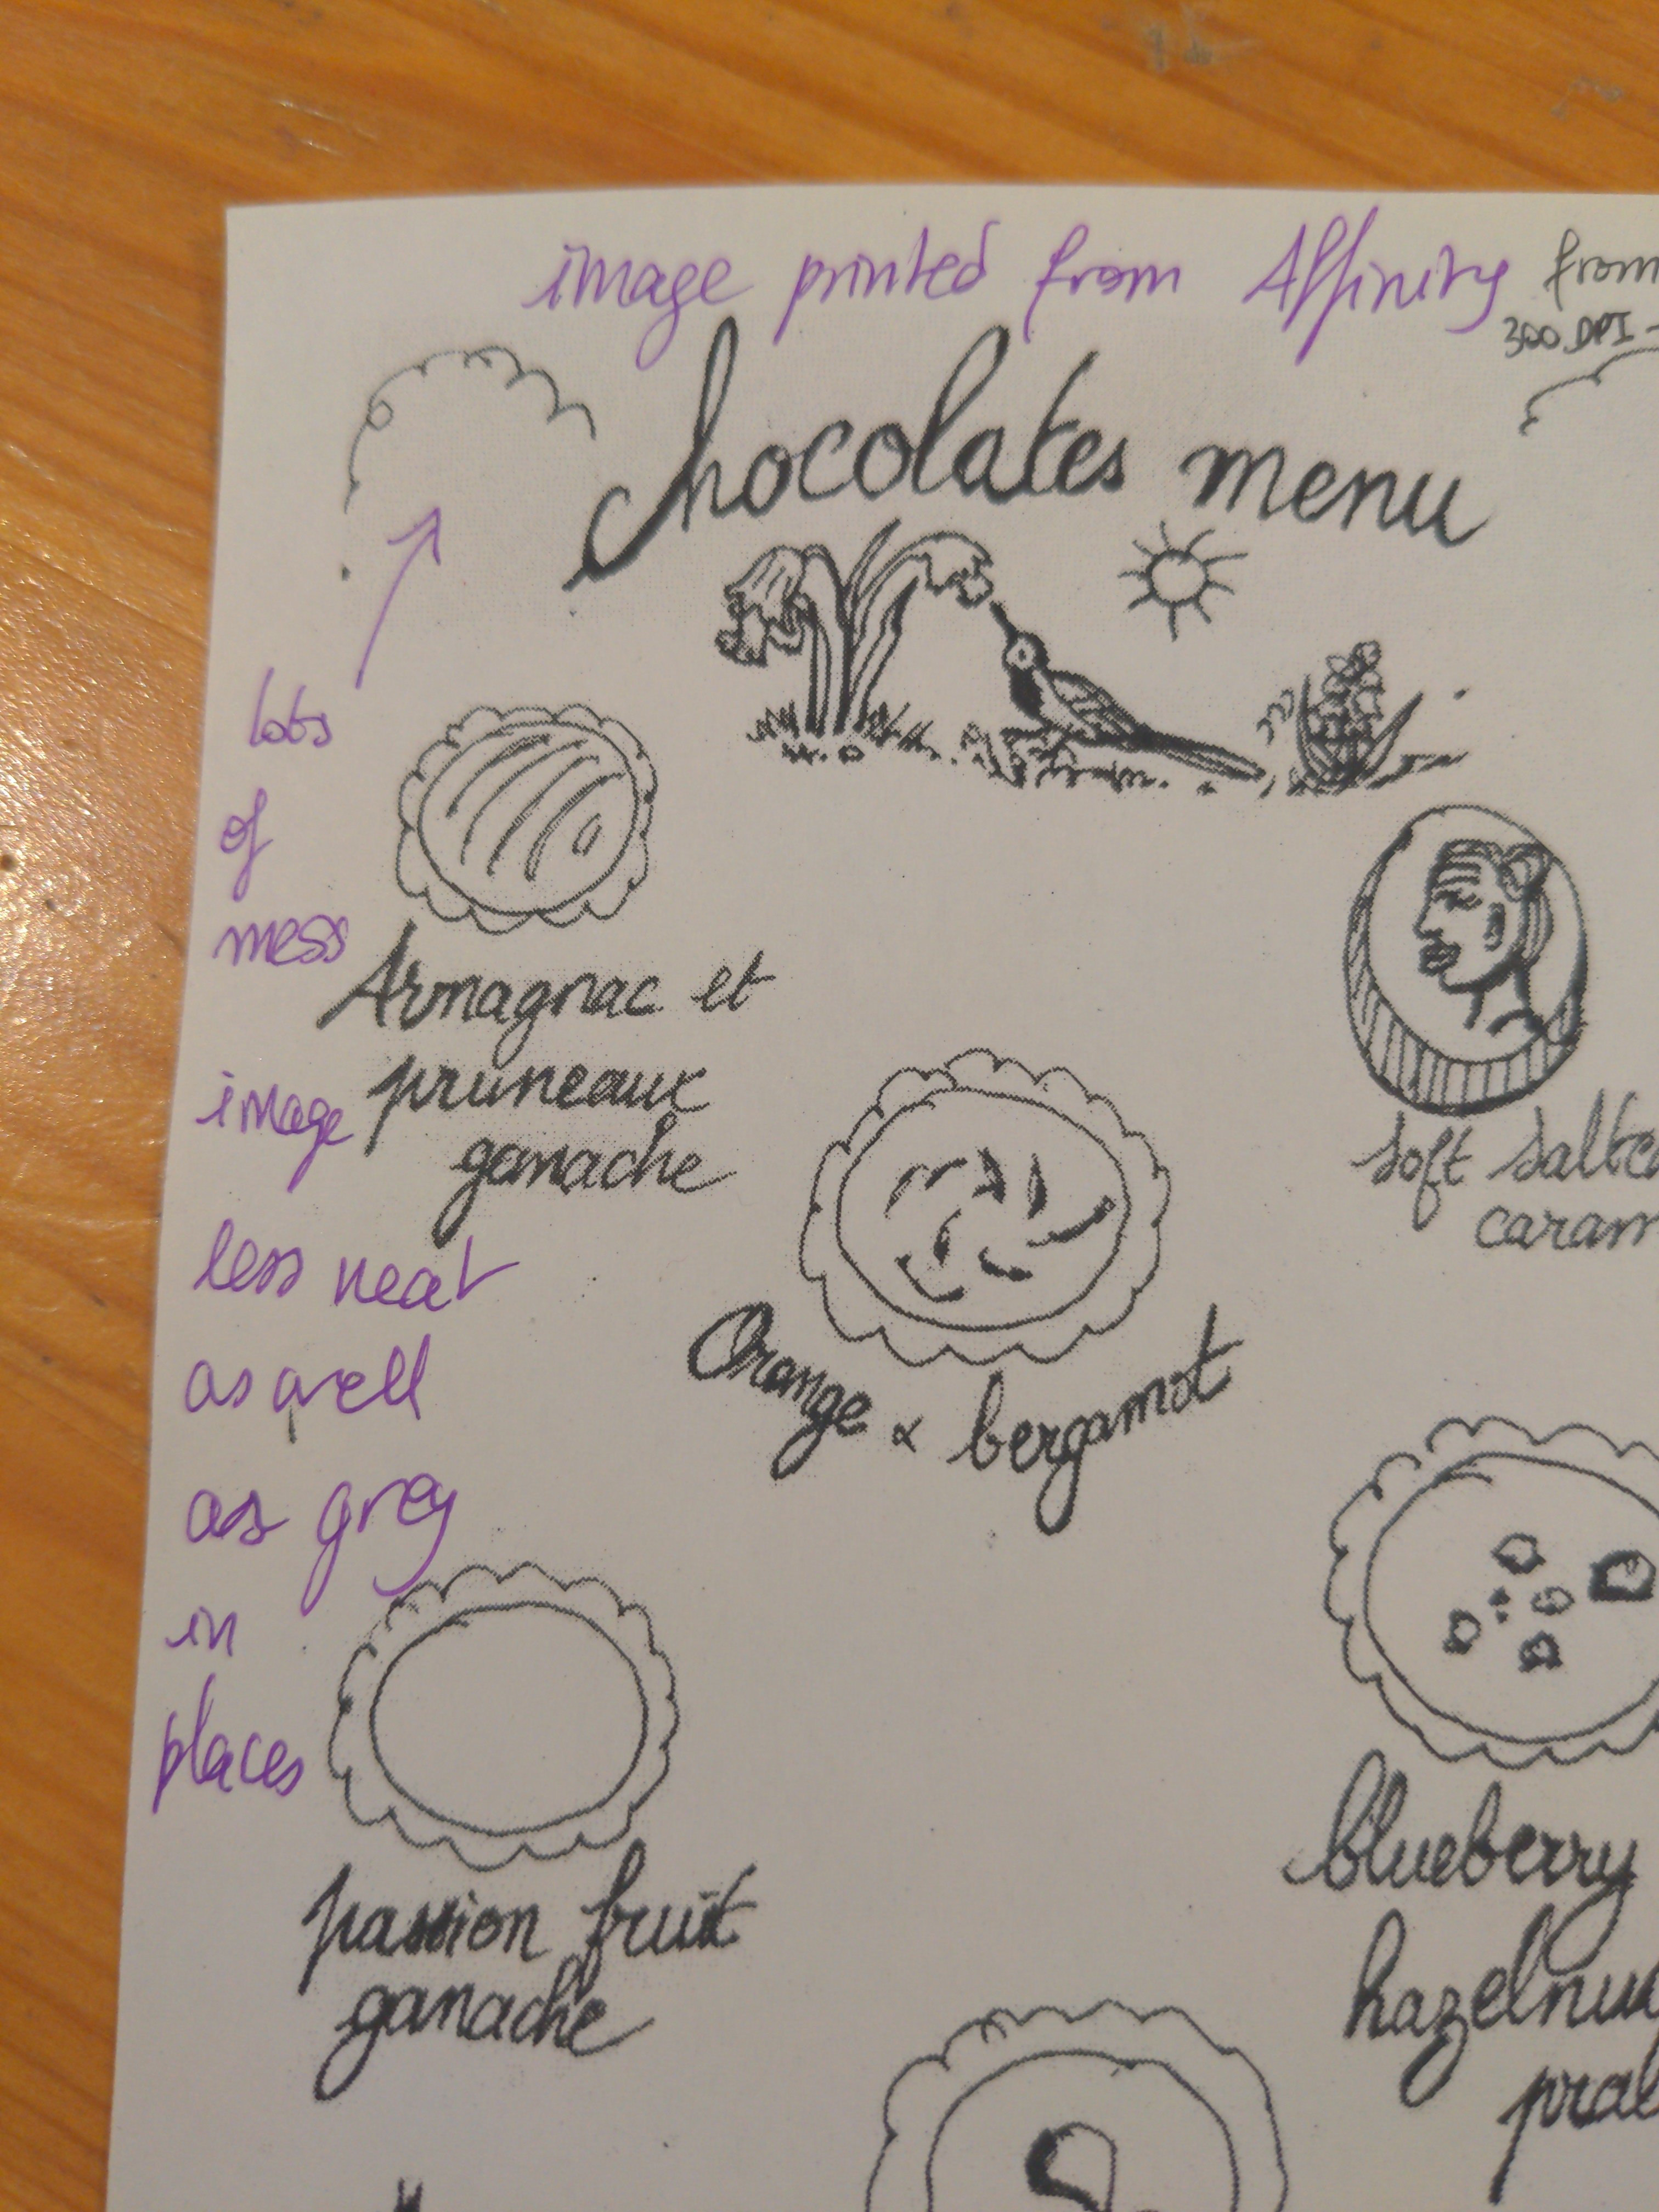 image printed from Affinity from
300 DPI -
Chocolates menu
lots
of
mess
image
less neat
as well
as grey
in
places
Armagnac et
pruneaux
ganache
soft salted
caram
Orange & bergamot
blueberry
hazelnu
pral
passion fruit
ganache